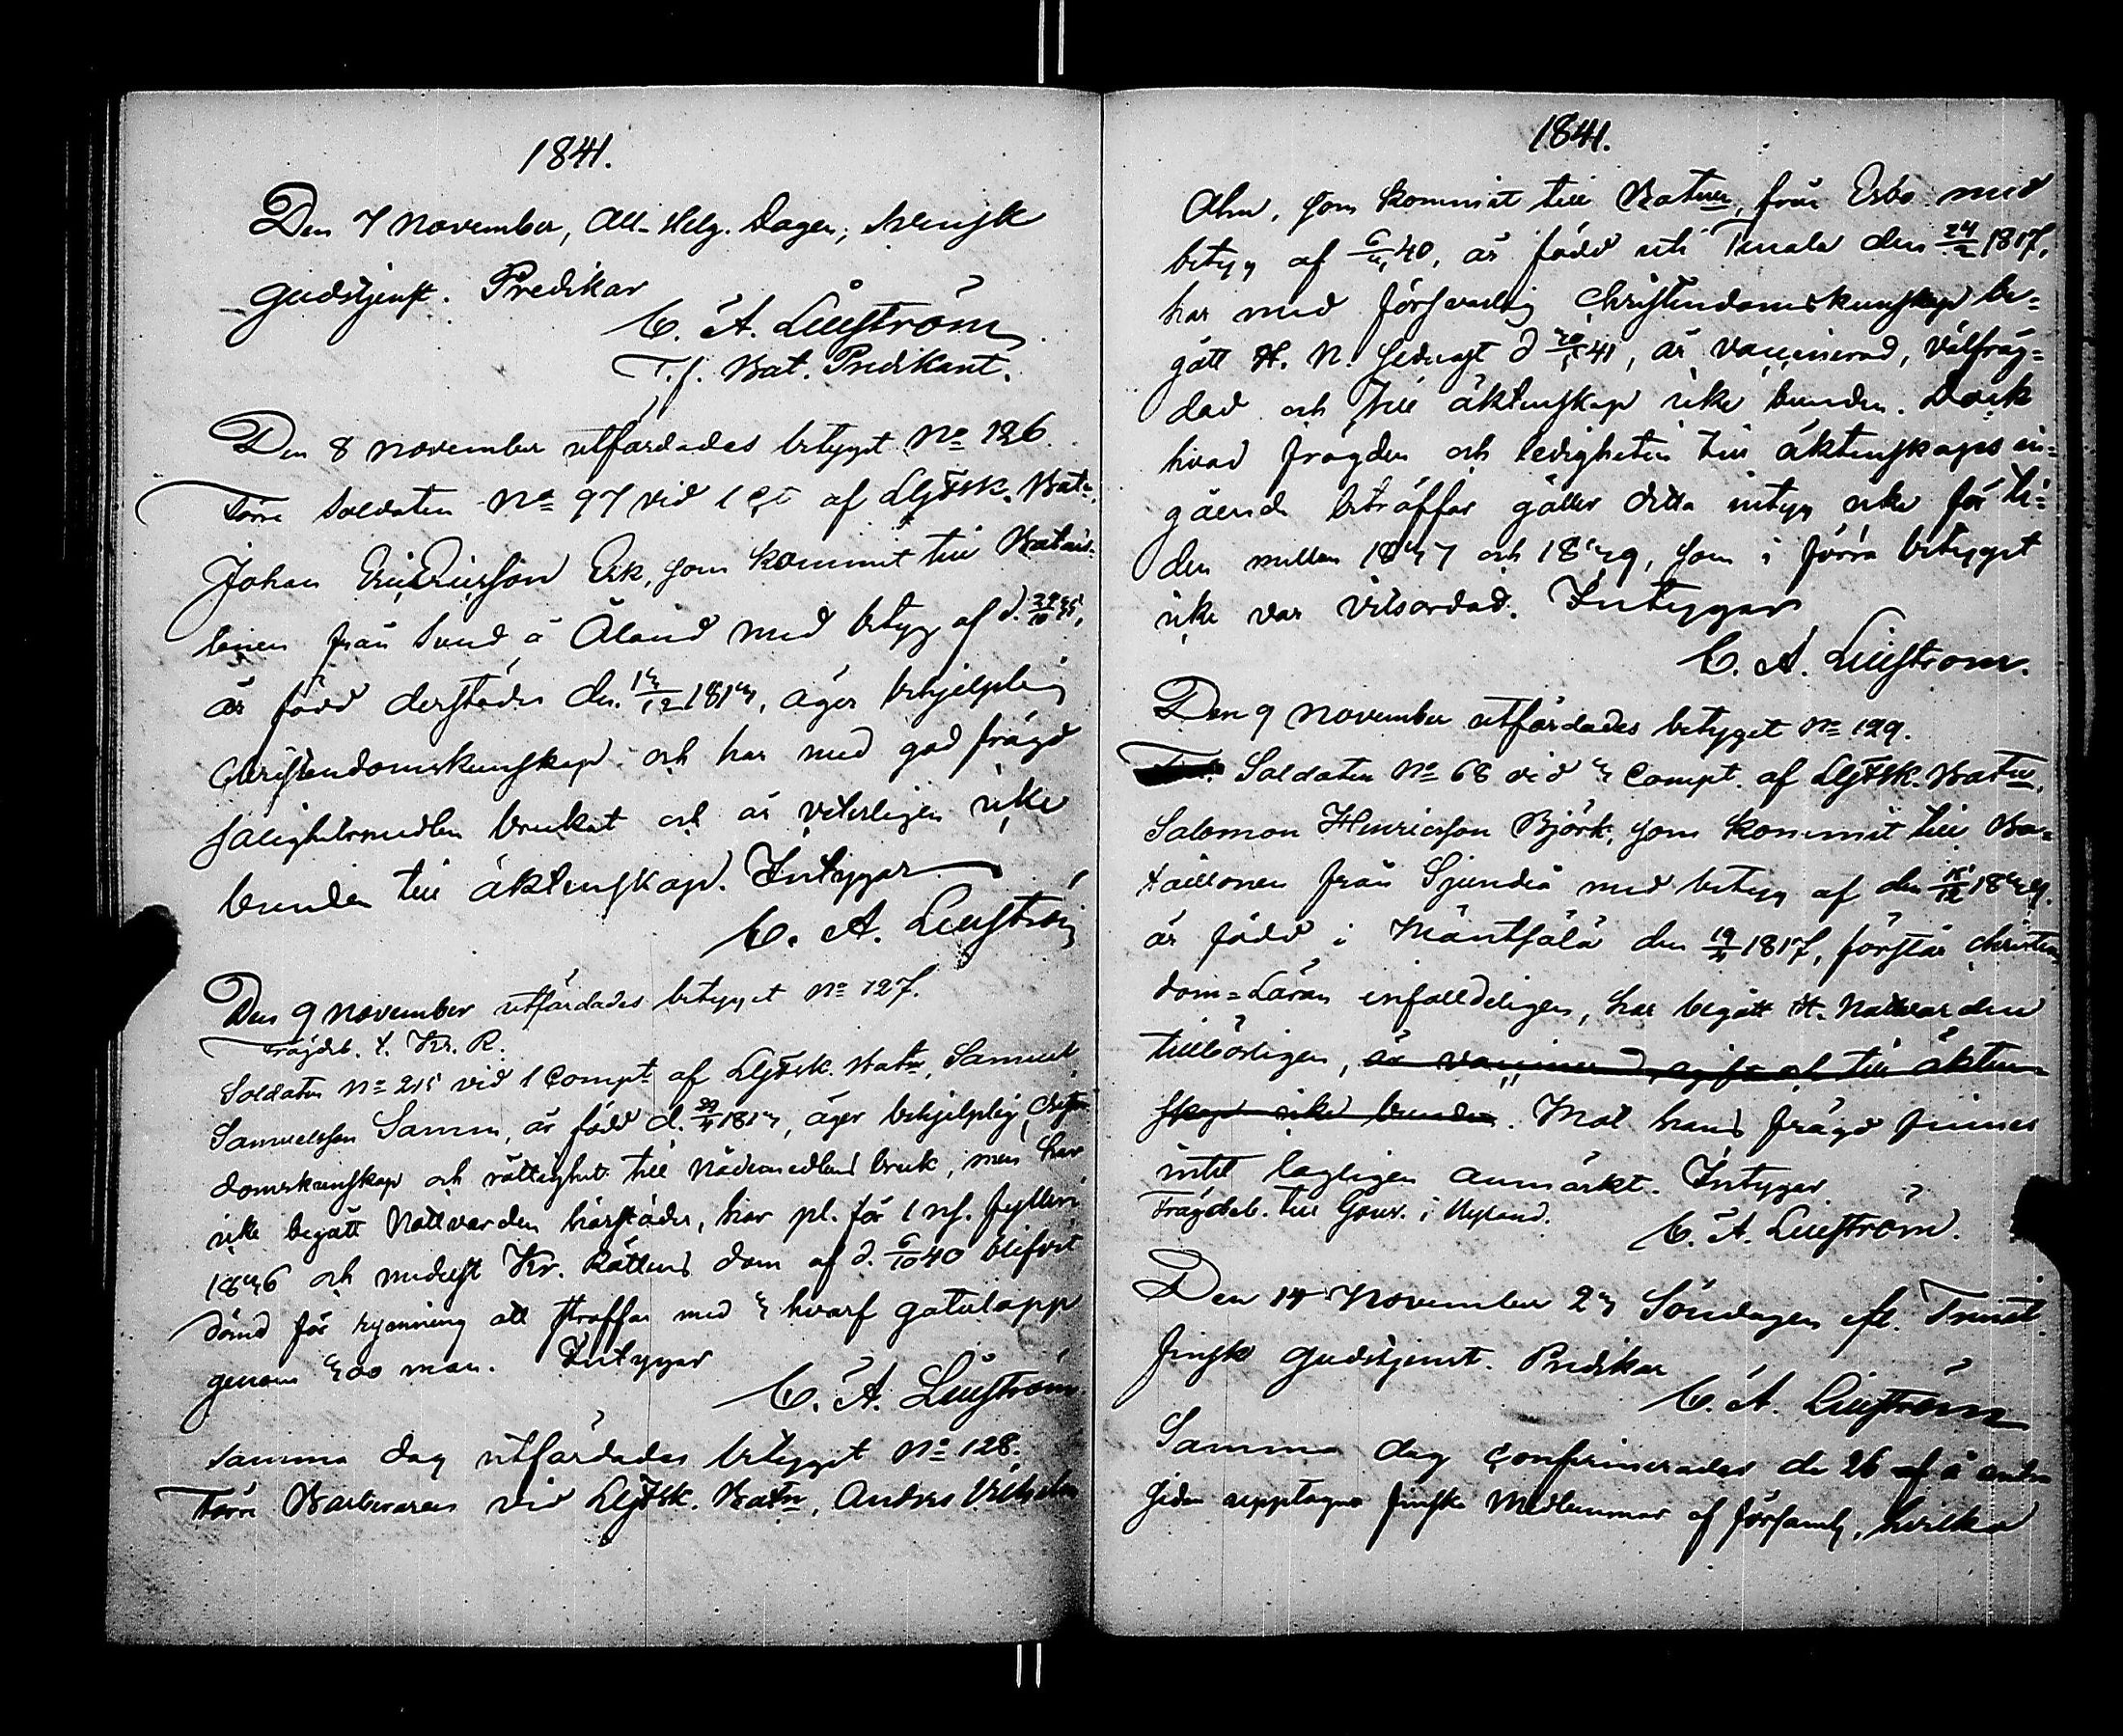 1841.
Den 7 November, All-Helg. Dagen, Svensk
gudstjenst. Predikar
C. A. Liliström
T.f. Bat. Predikant.
Den 8 November utfärdades betyget No 126.
Förre Soldaten No 97 vid 1 C. af LGFSk. Batn.
Johan Ericsson Ek, som kommit till Batail-
lonen från Sund å Åland med betyg af d.
är född derstädes den, äger behjelplig
Christendomskunskap och har med god frägd
salighetsmedlen brukat och är veterligen icke
bunden till äktenskap. Intygar
C. A. Liliström
Den 9 November utfärdades betyget No 127.
Frägdeb. t. Kr. R.
Soldaten No 215 vid 1 Compt. af LGFSk. Batn, Samuel
Samuelsson Samm, är född d., äger behjelplig Christen
domskunskap och rättighet till Nådemedlens bruk, men har
icke begått Nattvarden härstädes, har pl. för 1 rs. fylleri
1836 och medelst Kr. Rättens dom af d. 6/10 40 blifvit
dömd för rymning att straffas med 3 hvarf gatulopp
genom 300 man. Intygar
C. A. Liliström
Samma dag utfärdades betyget No 128.
Förre Barberaren vid LGFSk. Batn, Anders Vilhelm
1841.
Alm, som kommit till Batnen från Esbo med
betyg af 6/11 40, är född uti Tenala den 24/2 1817,
har med försvarlig Christendomskunskap be-
gått H. N. sednast d 20/5 41, är vaccinerad, välfräg-
dad och till äktenskap icke bunden. Dock
hvad frägden och ledigheten till äktenskaps in-
gående beträffar gäller detta intyg icke för ti-
den mellan 1837 och 1839, som i förra betyget
icke var vitsordad. Intygar
C. A. Liliström.
Den 9 November utfärdades betyget No 129.
Soldaten No 68 vid 3 Compt. af LGFSk. Batn,
Salomon Henricsson Björk, som kommit till Ba-
taillonen från Sjundeå med betyg af den
är född i Mäntsälä den 1817, förstår Christen
dom-Läran enfalldeligen, har begått H. Nattvarden
tillbörligen, är vaccinerad, ogift och till äkten-
skap icke bunden. Mot hans frägd finnes
intet lagligen anmärkt. Intygar
Frägdeb. till Gouv. i Nyland.
C. A. Liliström.
Den 14 November 23 Söndagen eft. Trinit.
finsk gudstjenst. Predikar
C. A. Liliström
Samma dag confirmerades de 26 af å andra
sidan upptagne finska Medlemmar af församl., hvilka